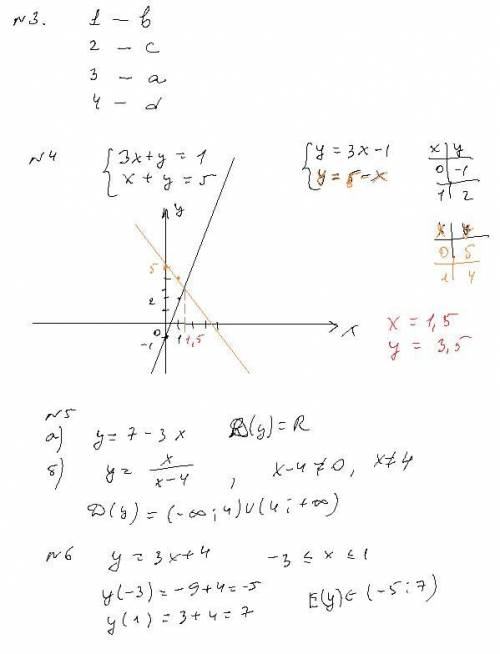 №3. 1 – b
2 – c
3 – a
4 – d
№4 { 3x+y = 1
x + y = 5
{ y = 3x-1
y = 5-x
x | y
0 | -1
1 | 2
x | y
0 | 5
1 | 4
y
5
2
0
-1
1 1,5
x
x = 1,5
y = 3,5
№5
а) y = 7 - 3x D(y) = R
б) y = x/(x-4) , x-4≠0, x≠4
D(y) = (-∞; 4)∪(4; +∞)
№6 y = 3x+4 -3 ≤ x ≤ 1
y(-3) = -9+4 = -5
y(1) = 3+4 = 7
E(y)∈(-5; 7)